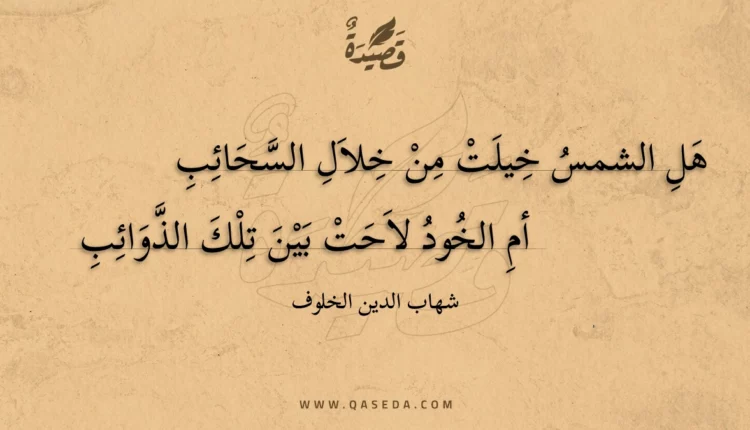 قَصِيدَةٌ
هَلِ الشمسُ خِيلَتْ مِنْ خِلاَلِ السَّحَائِبِ
أمِ الخُودُ لاَحَتْ بَيْنَ تِلْكَ الذَّوَائِبِ
شهاب الدين الخلوف
WWW.QASEDA.COM